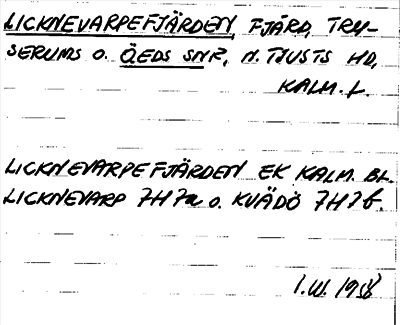 LICKNEVARPEFJÄRDEN, FJÄRD, TRY-
SERUMS O. ÖEDS SNR, N. TJUSTS HD,
KALM. L.
LICKNEVARPEFJÄRDEN EK KALM. BL.
LICKNEVARP 7H7a O. KVÄDÖ 7H7b.
1.III.1958